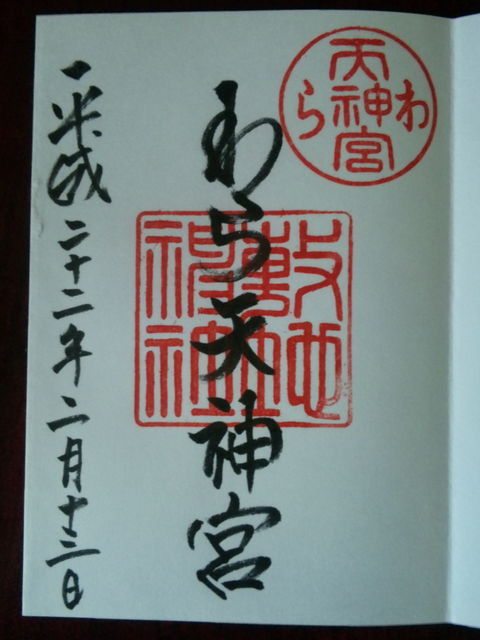 わら天神宮
わら天神宮
敷地神社
平成二十二年二月十二日